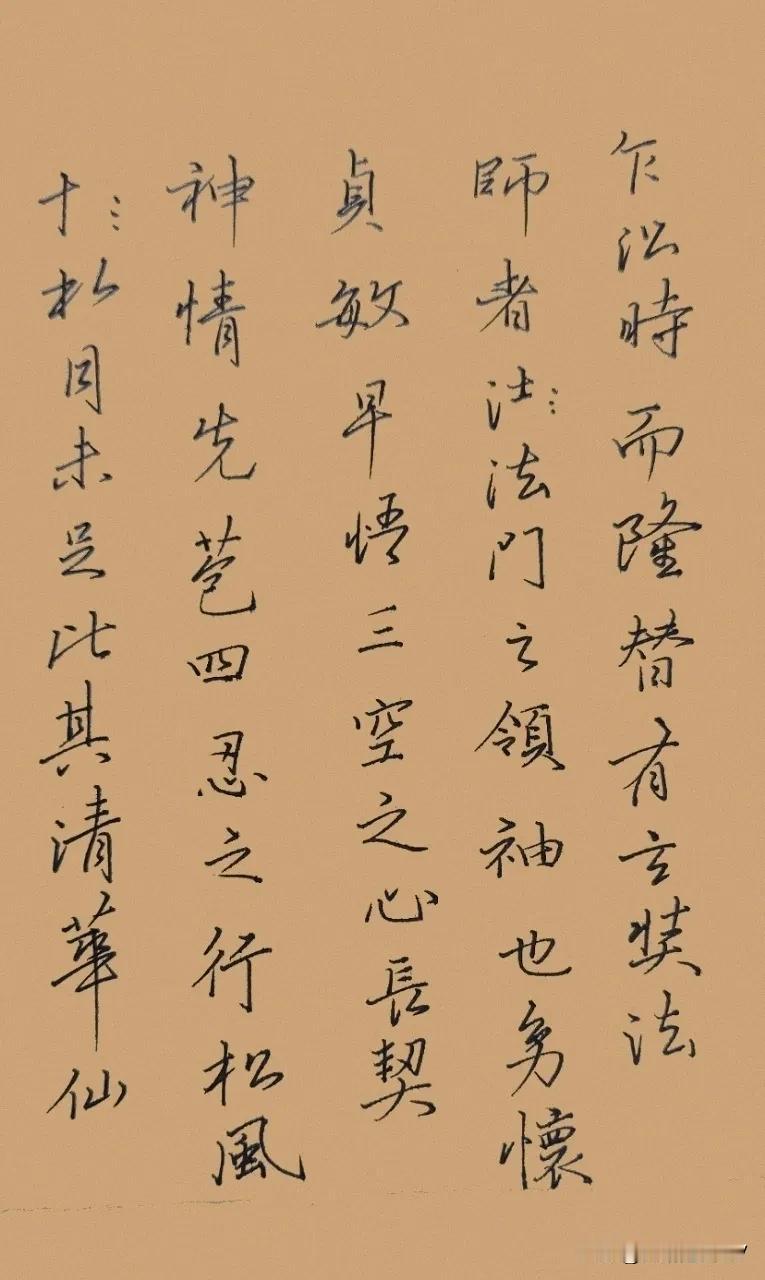 乍沿時而隆替有玄奘法
師者法門之領袖也幼懷
貞敏早悟三空之心長契
神情先苞四忍之行松風
十水月未足比其清華仙